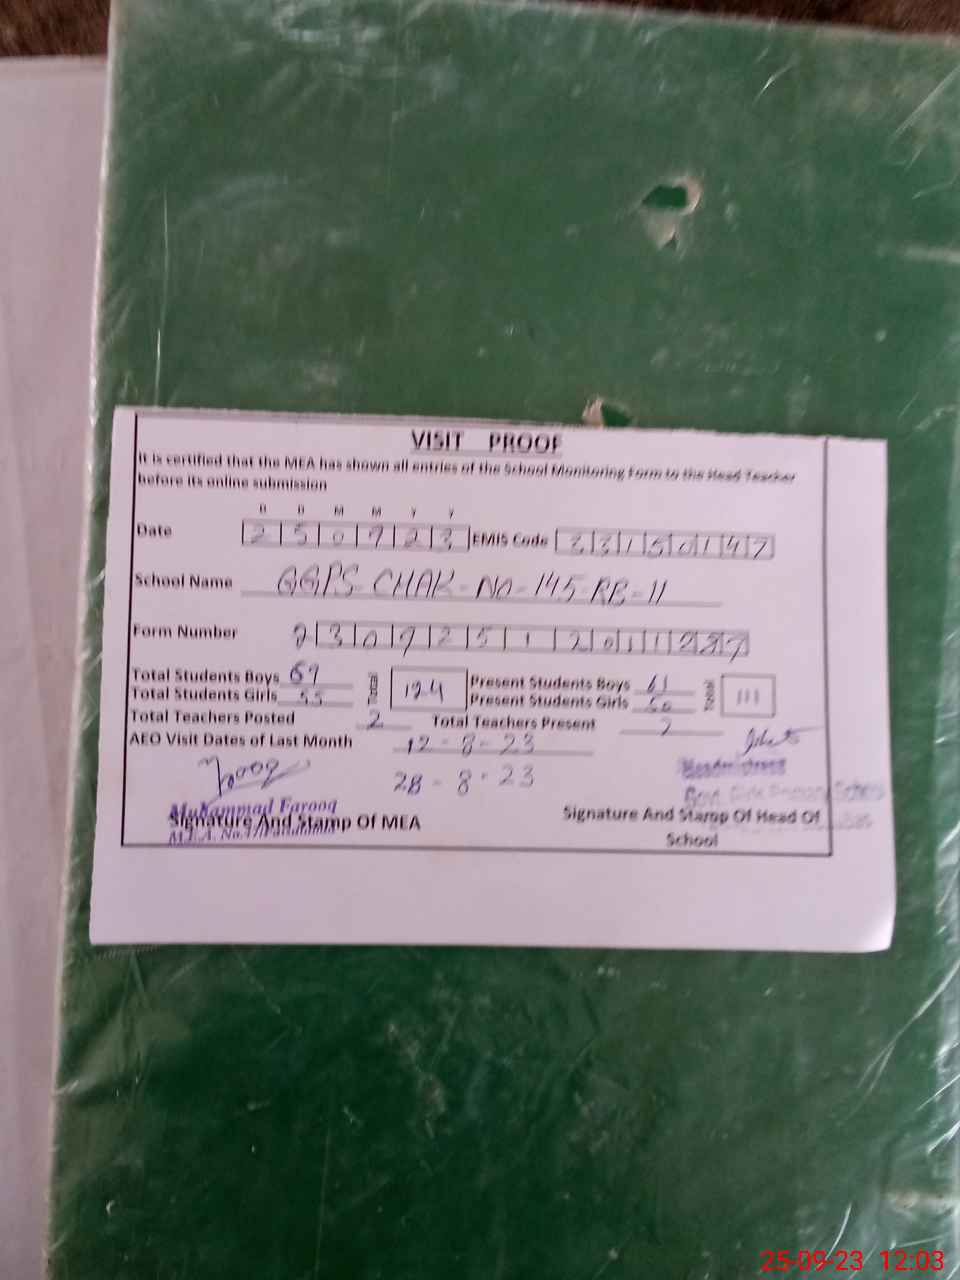 VISIT PROOF
It is certified that the MEA has shown all entries of the School Monitoring Form to the Head Teacher
before its online submission
D D M M Y Y
Date 2 5 0 9 2 3 EMIS Code 3 3 1 5 0 1 4 7
School Name GGPS CHAK-NO-145-RB-11
Form Number
Total Students Boys 69 Total 124 Present Students Boys 61 Total 111
Total Students Girls 55 Present Students Girls 50
Total Teachers Posted 2 Total Teachers Present 2
AEO Visit Dates of Last Month 12-8-23
28-8-23
Headmistress
Govt. Girls Primary School
Muhammad Farooq
Signature And Stamp Of MEA Signature And Stamp Of Head Of
School
M.E.A. No.
25-09-23 12:03